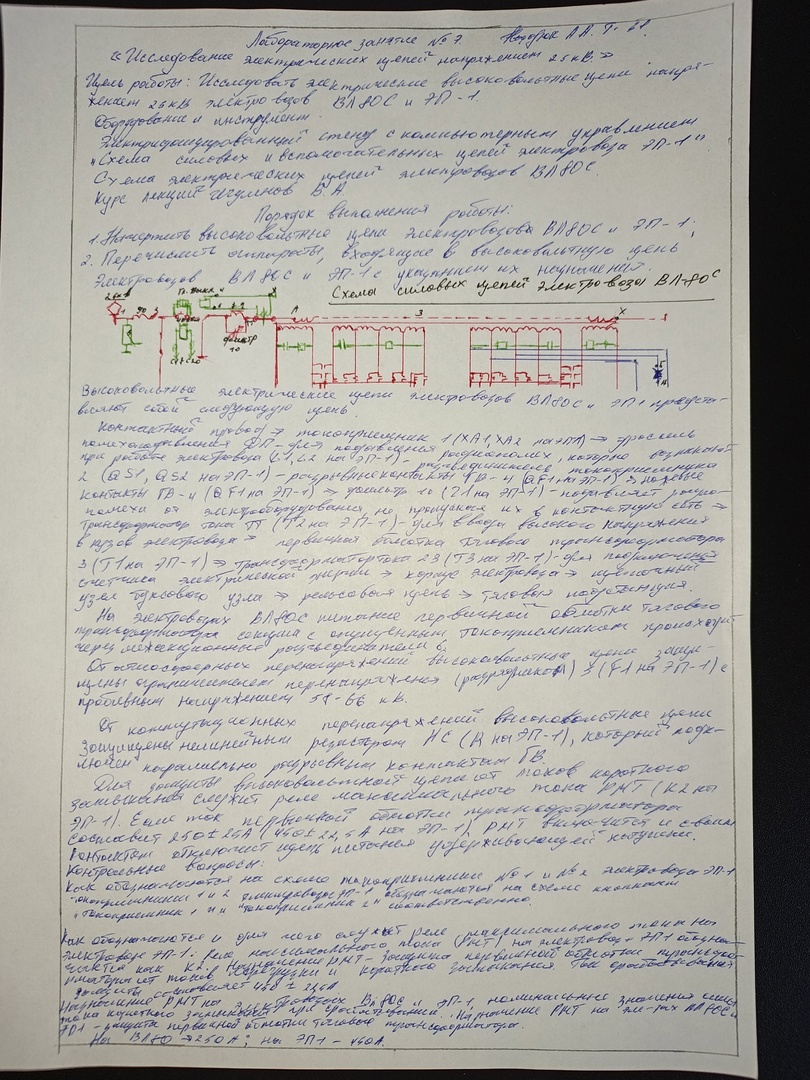 Лабораторное занятие № 7.
«Исследование электрических цепей напряжением 25 кВ.»
Цель работы: Исследовать электрические высоковольтные цепи напря-
жением 25 кВ электровозов ВЛ80С и ЭП-1.
Оборудование и инструмент.
Электрифицированный стенд с компьютерным управлением
"Схема силовых и вспомогательных цепей электровоза ЭП-1"
Схема электрических цепей электровозов ВЛ80С.
Курс лекций В.А
Порядок выполнения работы:
1. Начертить высоковольтные цепи электровозова ВЛ80С и ЭП-1;
2. Перечислить аппараты, входящие в высоковольтную цепь
электровозов ВЛ80С и ЭП-1 с указанием их назначения.
Схема силовых цепей электровоза ВЛ-80С
25кВ
А 3 Х
фильтр
10
Высоковольтные электрические цепи электровозов ВЛ80С и ЭП1 представ-
вляют собой следующую цепь.
Контактный провод → токоприемник 1 (ХА1, ХА2 на ЭП1) → дроссель
помехоподавления ДП - для подавления радиопомех, которые возникают
при работе электровоза (L1, L2 на ЭП-1) - разъединители токоприемника
2 (QS1, QS2 на ЭП-1) - разрывные контакты ГВ-4 (QF1 на ЭП-1) → ножевые
контакты ГВ-4 (QF1 на ЭП-1) → фильтр 10 (Z1 на ЭП-1) - подавляет радио-
помехи от электрооборудования, не пропуская их в контактную сеть →
трансформатор тока ТТ (Т2 на ЭП-1) - для ввода высокого напряжения
в кузов электровоза → первичная обмотка тягового трансформатора
3 (Т1 на ЭП-1) → трансформатор тока 23 (Т3 на ЭП-1) - для подключения
счетчика электрической энергии → корпус электровоза →
узел буксового узла → рельсовая цепь → тяговая подстанция.
На электровозах ВЛ80С питание первичной обмотки тягового
трансформатора секции с опущенным токоприемником происходит
через межсекционные разъединители 6.
От атмосферных перенапряжений высоковольтные цепи защи-
щены ограничителем перенапряжения (разрядником) 5 (F1 на ЭП-1) с
пробивным напряжением 58-66 кВ.
От коммутационных перенапряжений высоковольтные цепи
защищены нелинейным резистором НС (R на ЭП-1), который подк-
лючен параллельно разрывным контактам ГВ.
Для защиты высоковольтной цепи от токов короткого
замыкания служит реле максимального тока РМТ (К2 на
ЭП-1). Если ток первичной обмотки трансформатора
составит 250±25А (450±22,5А на ЭП-1), РМТ включится и своим
контактом отключит цепь питания удерживающей катушки.
Контрольные вопросы:
Как обозначаются на схеме токоприемники №1 и №2 электровоза ЭП-1
токоприемники 1 и 2 электровоза ЭП-1 обозначаются на схеме кнопками
"токоприемник 1" и "токоприемник 2" соответственно.
Как обозначаются и для чего служит реле максимального тока на
электровозе ЭП-1. Реле максимального тока (РМТ) на электровозе ЭП1 обозна-
чается как К2. Назначение РМТ - защита первичной обмотки трансфо-
рматора от токов перегрузки и короткого замыкания. Ток срабатывания
защиты составляет
Назначение РМТ на электровозах ВЛ80С и ЭП-1, номинальные значения силы
тока короткого замыкания при срабатывании. Назначение РМТ на эл-зах ВЛ80С и
ЭП1 - защита первичной обмотки тягового трансформатора.
На ВЛ80 → 250А; на ЭП1 - 450А.